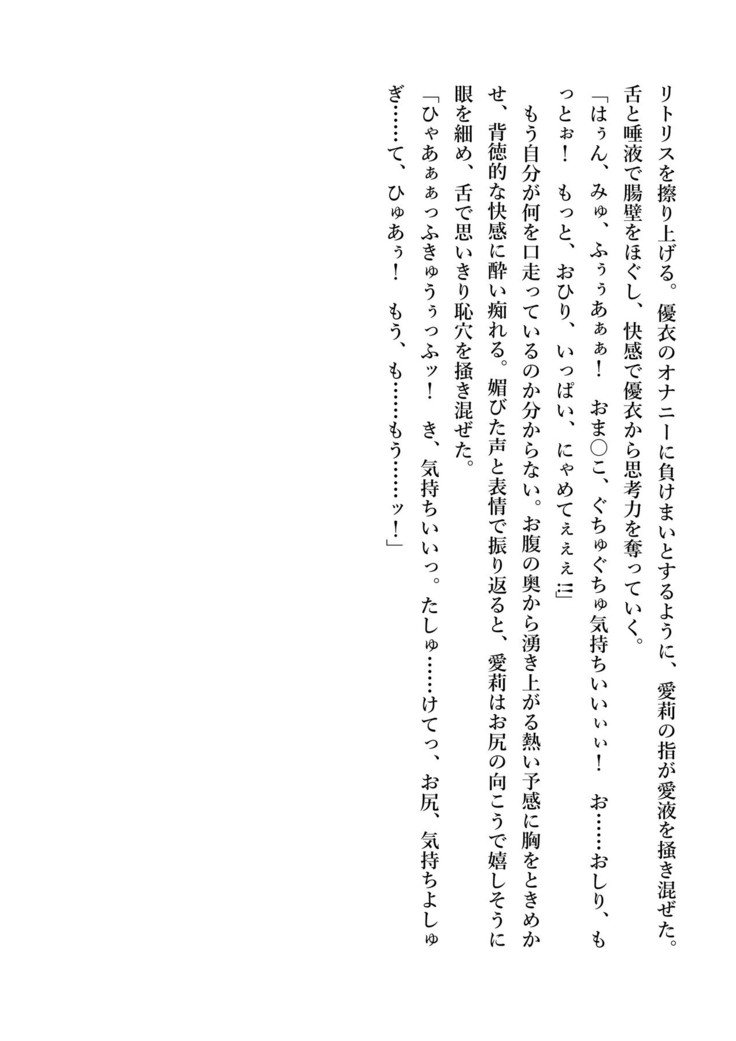 リトリスを擦り上げる。優衣のオナニーに負けまいとするように、愛莉の指が愛液を掻き混ぜた。
舌と唾液で腸壁をほぐし、快感で優衣から思考力を奪っていく。
「はぅん、みゅ、ふぅぅあぁぁ！　おま〇こ、ぐちゅぐちゅ気持ちいいぃぃ！　お……おしり、も
っとぉ！　もっと、おひり、いっぱい、にゃめてぇぇぇ!!」
　もう自分が何を口走っているのか分からない。お腹の奥から湧き上がる熱い予感に胸をときめか
せ、背徳的な快感に酔い痴れる。媚びた声と表情で振り返ると、愛莉はお尻の向こうで嬉しそうに
眼を細め、舌で思いきり恥穴を掻き混ぜた。
「ひゃあぁぁっふきゅうぅっふッ！　き、気持ちいいっ。たしゅ……けてっ、お尻、気持ちよしゅ
ぎ……て、ひゅあぅ！　もう、も……もう……ッ！」